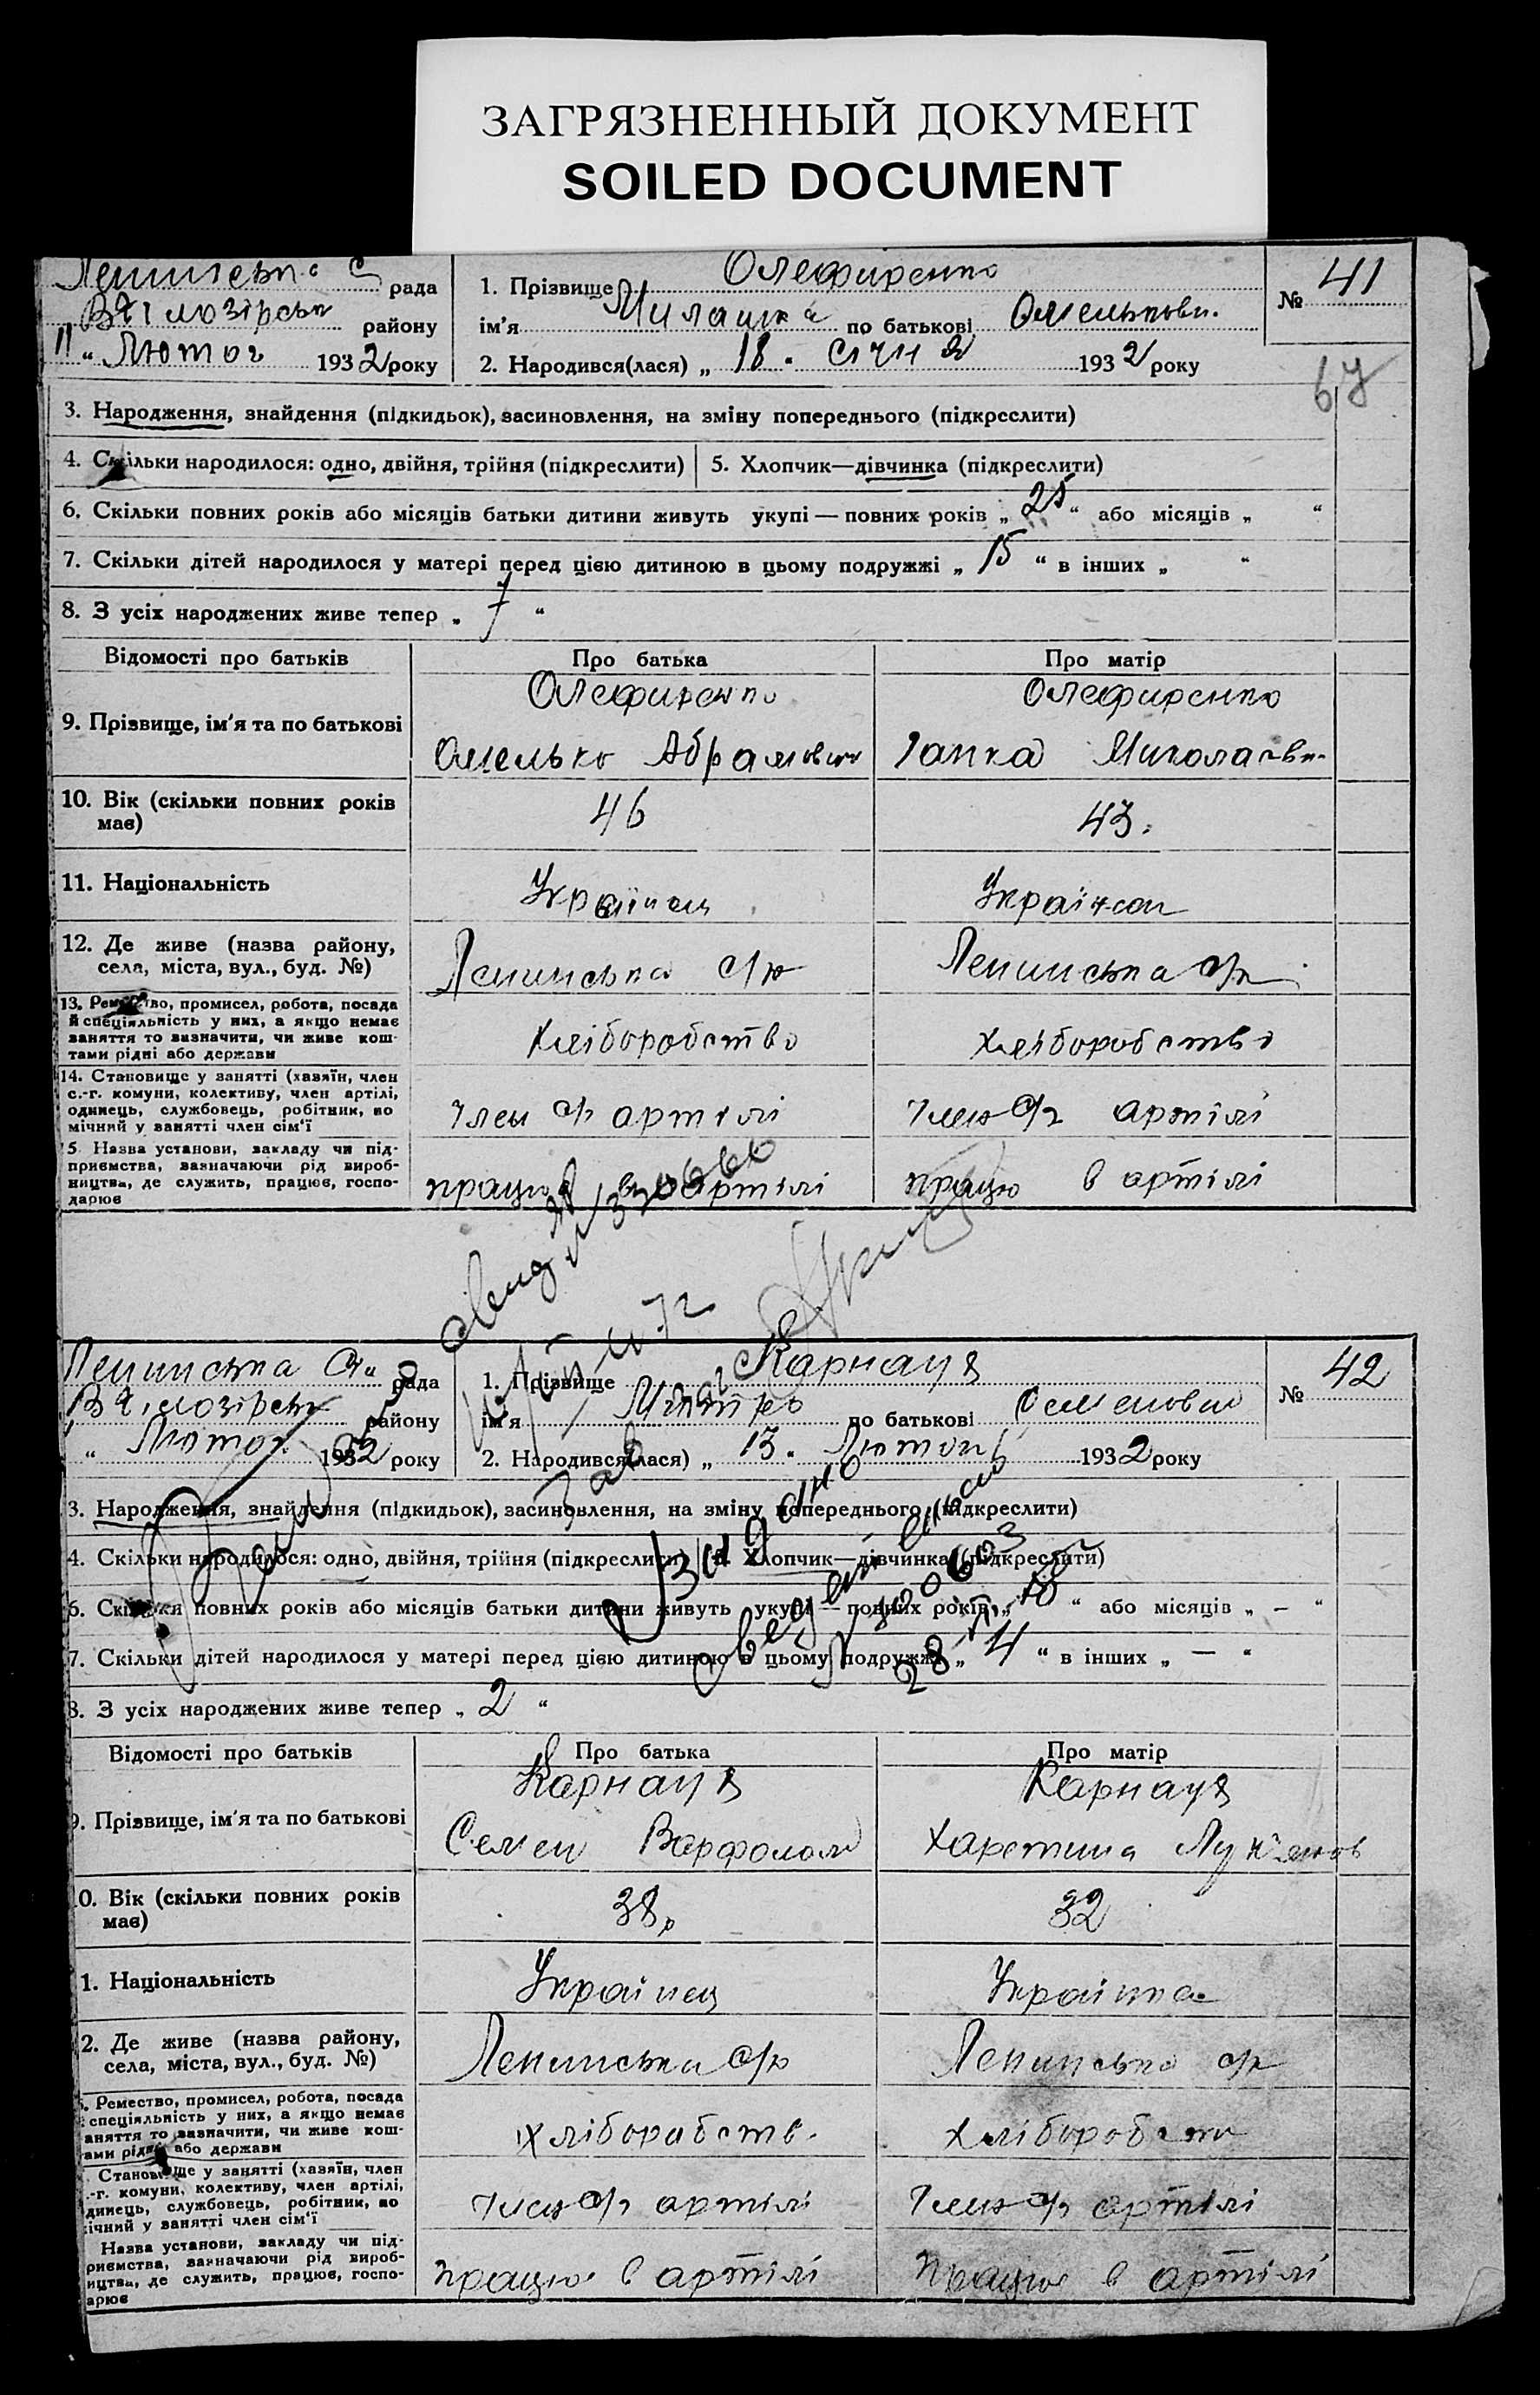 ЗАГРЯЗНЕННЫЙ ДОКУМЕНТ
SOILED DOCUMENT
рада
району
"11" Лютог 1932 року
1. Прізвище Олефиренко
ім'я Милашка по батькові Омелькови.
2. Народився(лася) „18" січня 1932 року
№ 41
67
3. Народження, знайдення (підкидьок), засиновлення, на зміну попереднього (підкреслити)
4. Скільки народилося: одно, двійня, трійня (підкреслити)
5. Хлопчик—дівчинка (підкреслити)
6. Скільки повних років або місяців батьки дитини живуть укупі — повних років „25" або місяців „ "
7. Скільки дітей народилося у матері перед цією дитиною в цьому подружжі „15" в інших „ "
8. З усіх народжених живе тепер „7"
Відомості про батьків
Про батька
Про матір
9. Прізвище, ім'я та по батькові
Олефиренко
Омелько Абрамович
Олефиренко
Гапка Миколаевн.
10. Вік (скільки повних років має)
46
43.
11. Національність
Українец
Українка
12. Де живе (назва району,
села, міста, вул., буд. №)
Ленинська с/р
Ленинська с/р
13. Ремество, промисел, робота, посада
й спеціяльність у них, а якщо немає
заняття то визначити, чи живе кош-
тами рідні або держави
хліборобство
хліборобство
14. Становище у занятті (хазяїн, член
с.-г. комуни, колективу, член артілі,
одинець, службовець, робітник, по
мічний у занятті член сім'ї
член с/г артілі
член с/г артілі
5. Назва установи, закладу чи під-
приємства, зазначаючи рід вироб-
ництва, де служить, працює, госпо-
дарює
працює в артілі
працює в артілі
Ленинська рада
району
" Лютог 1932 року
1. Прізвище Карнаух
ім'я Митро по батькові Семенович
2. Народився(лася) „13" Лютог 1932 року
№ 42
3. Народження, знайдення (підкидьок), засиновлення, на зміну попереднього (підкреслити)
4. Скільки народилося: одно, двійня, трійня (підкреслити)
Хлопчик—дівчинка (підкреслити)
6. Скільки повних років або місяців батьки дитини живуть укупі — повних років „10" або місяців „—"
7. Скільки дітей народилося у матері перед цією дитиною в цьому подружжі „4" в інших „—"
8. З усіх народжених живе тепер „2"
Відомості про батьків
Про батька
Про матір
9. Прізвище, ім'я та по батькові
Карнаух
Семен Варфолом
Карнаух
Харетина Лук'янов
10. Вік (скільки повних років має)
38р
32
1. Національність
Українец
Українка
2. Де живе (назва району,
села, міста, вул., буд. №)
Ленинська с/р
Ленинська с/р
Ремество, промисел, робота, посада
спеціяльність у них, а якщо немає
аняття то зазначити, чи живе кош-
ами рідні або держави
хліборобств.
хліборобств
Становище у занятті (хазяїн, член
.-г. комуни, колективу, член артілі,
динець, службовець, робітник, по
ічний у занятті член сім'ї
член с/г артілі
член с/г артілі
Назва установи, закладу чи під-
риємства, зазначаючи рід вироб-
ицтва, де служить, працює, госпо-
арює
працює в артілі
працює в артілі